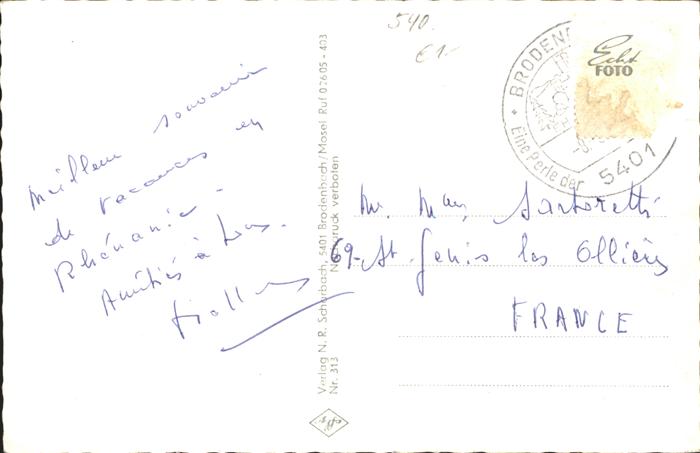 540.
€1-
Meilleur souvenir
de vacances en
Rhénanie.
Amitiés à tous.
Verlag N. R. Scherbach, 5401 Brodenbach/Mosel Ruf 02605-403
Nachdruck verboten
Nr. 313
BRODENB
Eine Perle der
5401
Echt
FOTO
Mr. Mme Sartoretti
69-St. Genis les Ollières
FRANCE